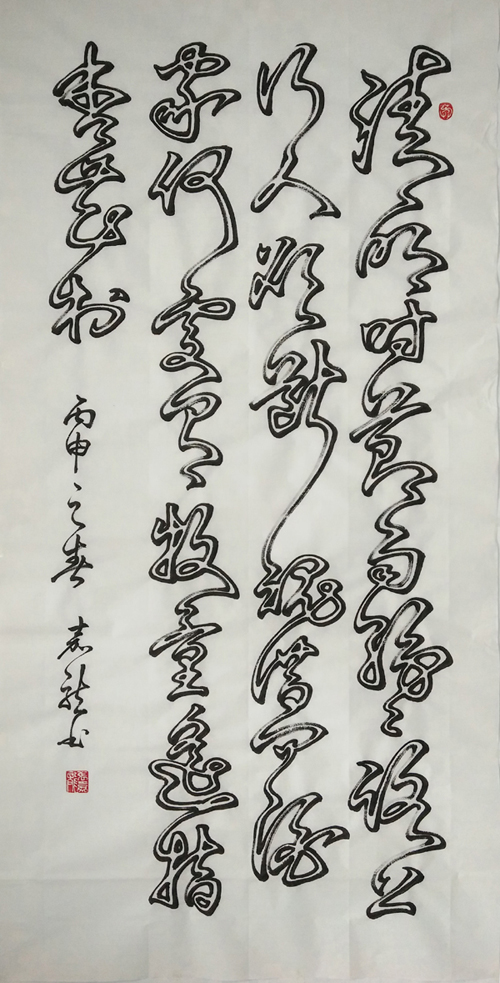 清明时节雨纷々路上
行人欲断魂借问酒
家何处有牧童遥指
杏花村 丙申之春 龙书